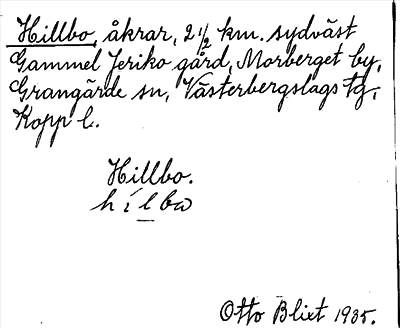 Hillbo, åkrar, 2 1/2 km. sydväst
Gammel Jeriko gård, Morberget by,
Grangärde sn, Västerbergslags tg,
Kopp l..
Hillbo.
hílbω
Otto Blixt 1935.